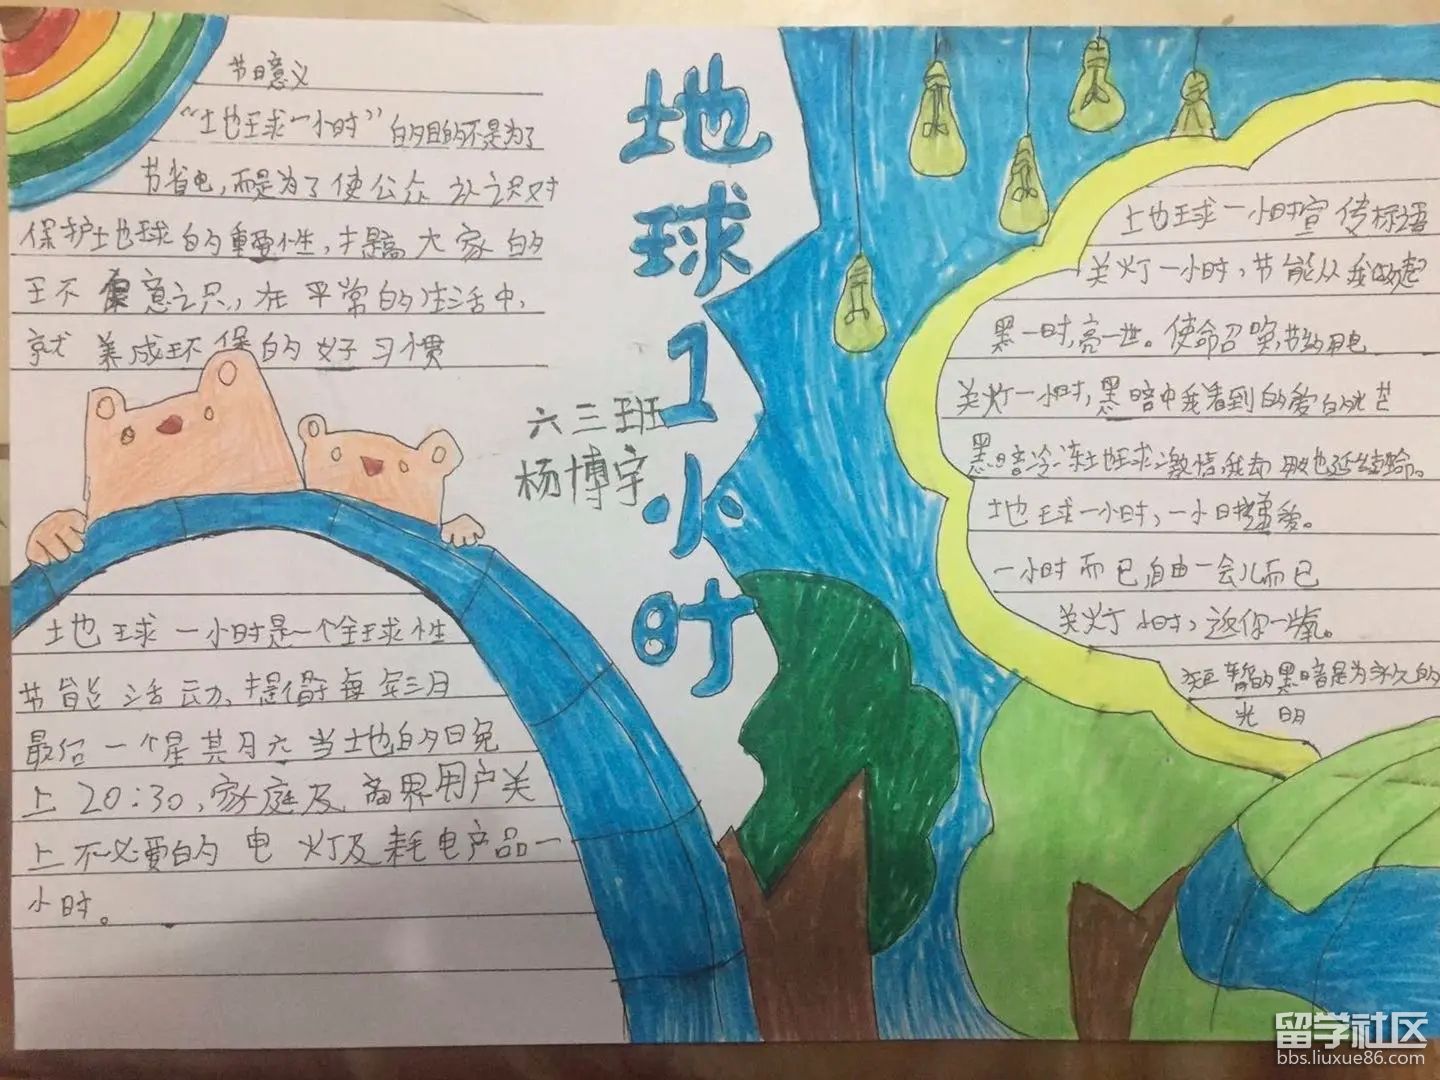 节日意义
“地球一小时”的目的不是为了
节省电,而是为了使公众认识对
保护地球的重要性,提高大家的
环保意识,在平常的生活中,
就养成环保的好习惯
地球1小时
六三班
杨博宇
地球一小时是一个全球性
节能活动,提倡于每年三月
最后一个星其月六当地的日免
上20:30,家庭及商界用户关
上不必要的电灯及耗电产品一
小时。
地球一小时宣传标语
关灯一小时,节能从我做起
黑一时,亮一世。使命召唤,节约用电
关灯一小时,黑暗中我看到的爱的光芒
黑暗冷冻地球激情我却
地球一小时,一小时
一小时而已,自由一会儿而已
关灯小时,返你一
短暂的黑暗是为永久的
光明
留学社区
bbs.liuxue86.com